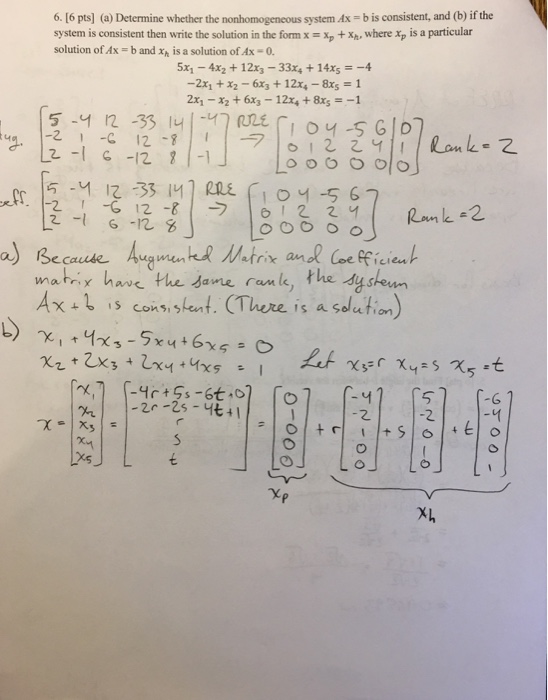 6. [6 pts] (a) Determine whether the nonhomogeneous system Ax = b is consistent, and (b) if the
system is consistent then write the solution in the form x = xₚ + xₕ, where xₚ is a particular
solution of Ax = b and xₕ is a solution of Ax = 0.
5x₁ − 4x₂ + 12x₃ − 33x₄ + 14x₅ = −4
−2x₁ + x₂ − 6x₃ + 12x₄ − 8x₅ = 1
2x₁ − x₂ + 6x₃ − 12x₄ + 8x₅ = −1
[5 -4 12 -33 14 | -4] RRE [1 0 4 -5 6 | 0]
ug. [-2 1 -6 12 -8 | 1] → [0 1 2 2 4 | 1] Rank = 2
[2 -1 6 -12 8 | -1] [0 0 0 0 0 | 0]
[5 -4 12 -33 14] RRE [1 0 4 -5 6]
eff. [-2 1 -6 12 -8] → [0 1 2 2 4] Rank = 2
[2 -1 6 -12 8] [0 0 0 0 0]
a) Because Augmented Matrix and Coefficient
matrix have the same rank, the system
Ax + b is consistent. (There is a solution)
b) x₁ + 4x₃ - 5x₄ + 6x₅ = 0
x₂ + 2x₃ + 2x₄ + 4x₅ = 1 Let x₃=r x₄=s x₅=t
[x₁] [-4r+5s-6t+0] [0] [-4] [5] [-6]
[x₂] [-2r-2s-4t+1] [1] [-2] [-2] [-4]
x = [x₃] = [r] = [0] + r [1] + s [0] + t [0]
[x₄] [s] [0] [0] [1] [0]
[x₅] [t] [0] [0] [0] [1]
xp
xh